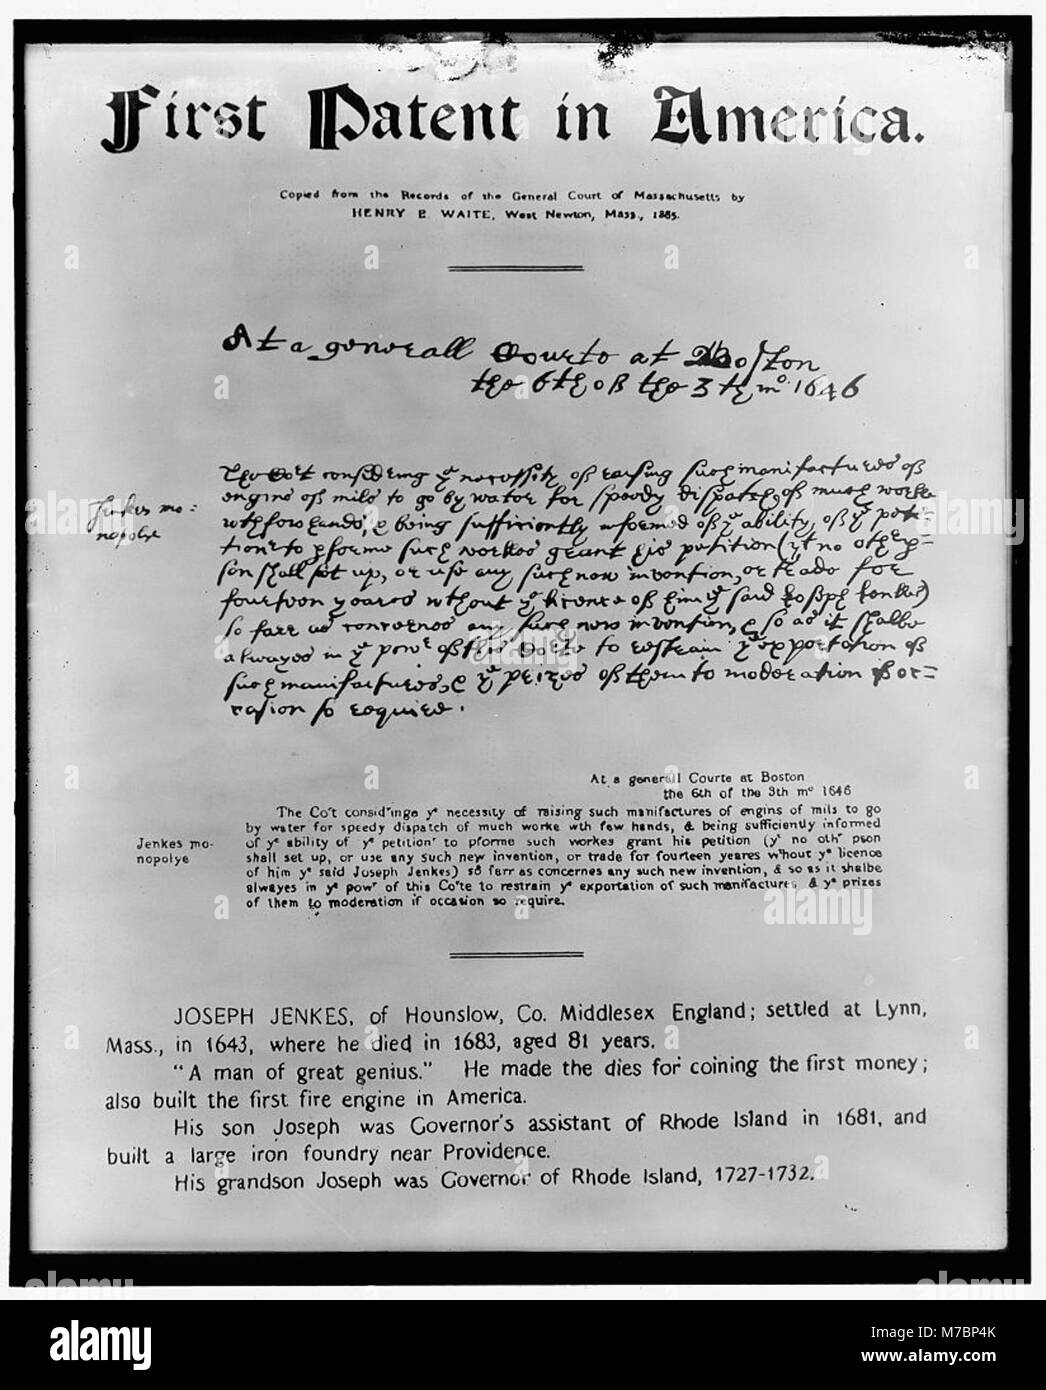 First Patent in America.
Copied from the Records of the General Court of Massachusetts by
HENRY E. WAITE, West Newton, Mass., 1885.
At a generall Courte at Boston
the 6th of the 3 th mo 1646
Jenkes mo=
nopolye
The Cort considering ye necessity of raising such manifactures of
engins of mils to go by water for speedy dispatch of much worke
wth few hands, & being sufficiently informed of ye ability of ye peti=
tionr to pforme such workes grant his petition (yt no other p=
son shall set up, or use any such new invention, or trade for
fourteen yeares wthout ye licence of him ye said Joseph Jenkes)
so farr as concernes any such new invention, & so as it shalbe
alwayes in ye powr of this Corte to restrain ye exportation of
such manifactures, & ye prizes of them to moderation if oc=
casion so require.
At a generall Courte at Boston
the 6th of the 3th mo 1646
Jenkes mo-
nopolye
The Co't consid'inge ye necessity of raising such manifactures of engins of mils to go
by water for speedy dispatch of much worke wth few hands, & being sufficiently informed
of ye ability of ye petition' to pforme such workes grant his petition (yt no othr pson
shall set up, or use any such new invention, or trade for fourteen yeares w'hout ye licence
of him ye said Joseph Jenkes) so farr as concernes any such new invention, & so as it shalbe
alwayes in ye powr of this Co'te to restrain ye exportation of such manifactures & ye prizes
of them to moderation if occasion so require.
JOSEPH JENKES, of Hounslow, Co. Middlesex England; settled at Lynn,
Mass., in 1643, where he died in 1683, aged 81 years.
"A man of great genius." He made the dies for coining the first money;
also built the first fire engine in America.
His son Joseph was Governor's assistant of Rhode Island in 1681, and
built a large iron foundry near Providence.
His grandson Joseph was Governor of Rhode Island, 1727-1732.
alamy
Image ID: M7BP4K
www.alamy.com